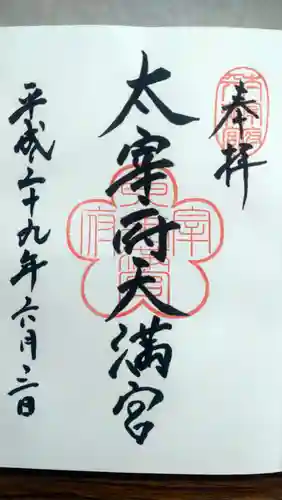 奉拝
太宰府天満宮
平成二十九年六月三日